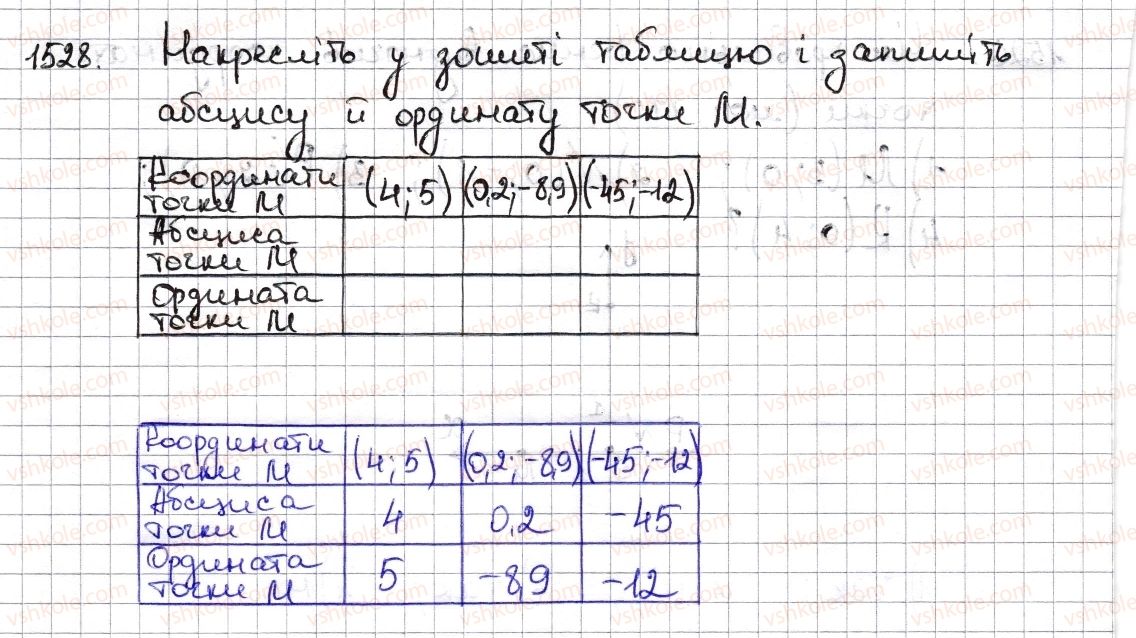 1528. Накресліть у зошиті таблицю і запишіть
абсцису й ординату точки М.
Координати точки М (4; 5) (0,2; -8,9) (-45; -12)
Абсциса точки М
Ордината точки М
Координати точки М (4; 5) (0,2; -8,9) (-45; -12)
Абсциса точки М 4 0,2 -45
Ордината точки М 5 -8,9 -12